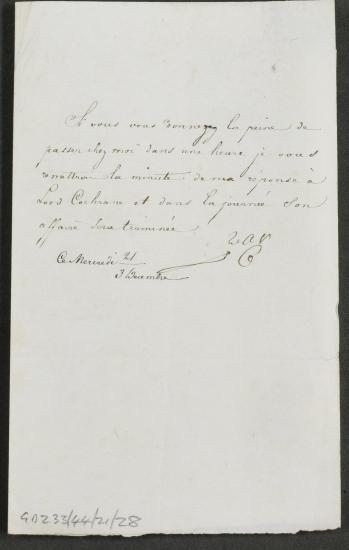 Si vous vous donnez la peine de
passer chez moi dans une heure je vous
remettrai la minute de ma réponse à
Lord Cochrane et dans la journée son
affaire sera terminée
Ce Mercredi 21
3 Decembre
GD233/44/21/28